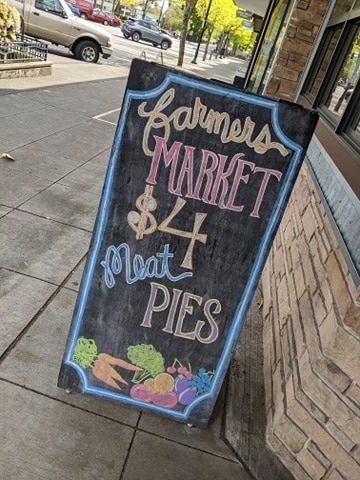 farmers
MARKET
$4
Meat
PIES